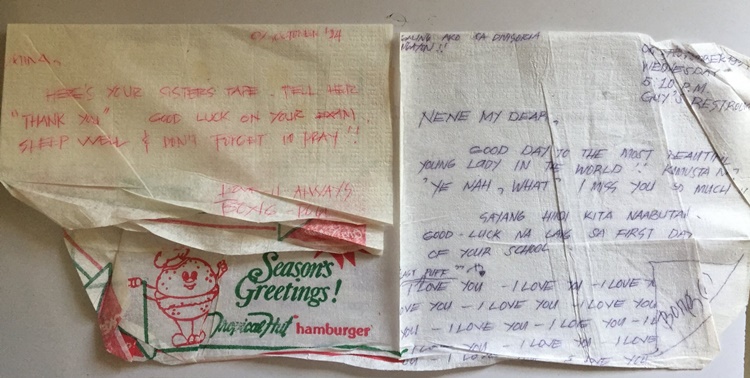 '94
NINA,
HERE'S YOUR SISTERS TAPE. TELL HER
"THANK YOU" GOOD LUCK ON YOUR EXAM.
SLEEP WELL & DON'T FORGET TO PRAY!!
LOVE U ALWAYS
Season's
Greetings!
Tropical Hut hamburger
GALING AKO SA DIVISORIA
WEDNESDAY
5:20 P.M.
GUY'S RESTROOM
NENE MY DEAR,
GOOD DAY TO THE MOST BEAUTIFUL
YOUNG LADY IN THE WORLD!! KAMUSTA NA
"YE NAH, WHAT" I MISS YOU SO MUCH
SAYANG HINDI KITA NAABUTAN.
GOOD-LUCK NA LANG SA FIRST DAY
OF YOUR SCHOOL
LAST PUFF
I LOVE YOU - I LOVE YOU - I LOVE
LOVE YOU - I LOVE YOU - I LOVE YOU
YOU - I LOVE YOU - I LOVE YOU - I LOVE
I LOVE YOU - I LOVE YOU I LOVE
YOU - I LOVE I LOVE YOU